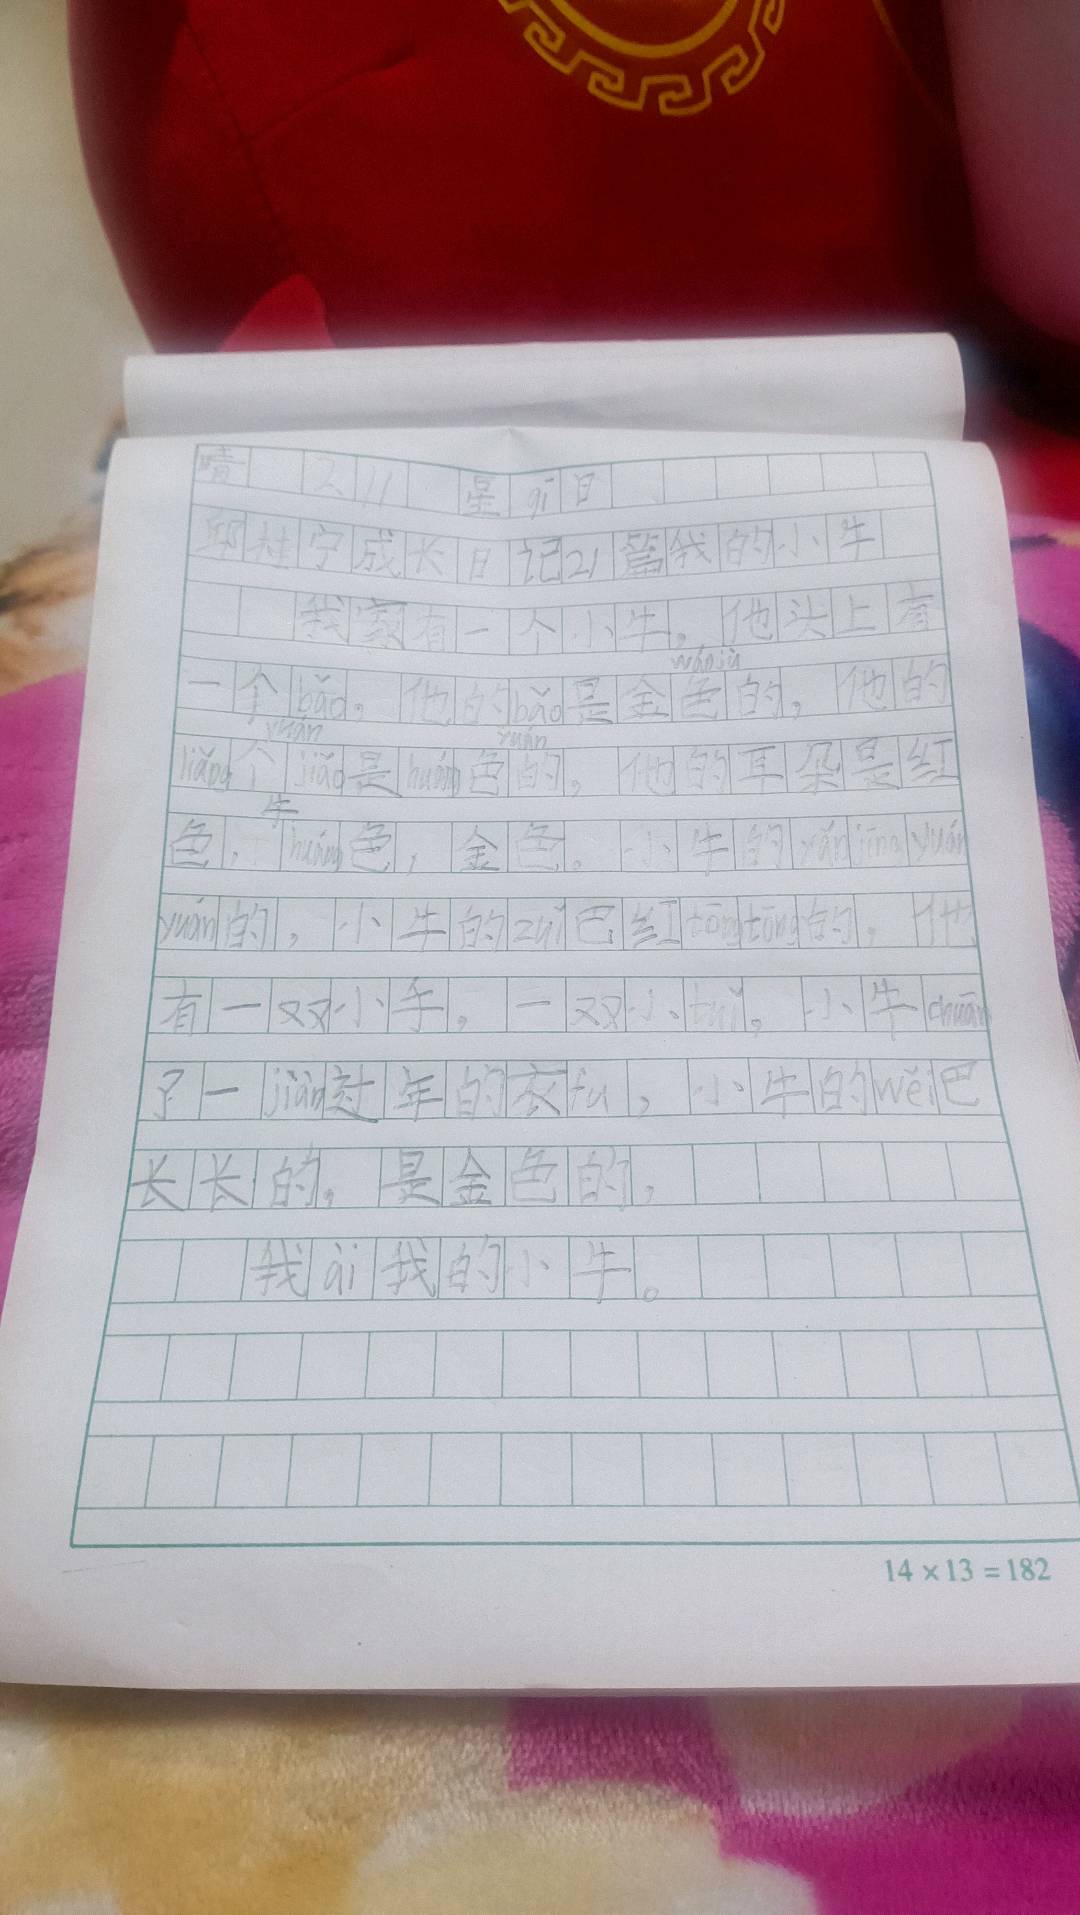 晴 2 11 星qī日
邱桂宁成长日记21篇我的小牛
我家有一个小牛，他头上有
wánjù
一个bǎo。他的bǎo是金色的，他的
yuán yuán
liǎng个jiǎo是huáng色的，他的耳朵是红
牛
色，huáng色，金色。小牛的yǎnjīngyuán
yuán的，小牛的zuǐ巴红tōngtōng的，他
有一双小手，一双小tuǐ。小牛chuān
了一jiàn过年的衣fu，小牛的wěi巴
长长的，是金色的，
我ài我的小牛。
14×13=182